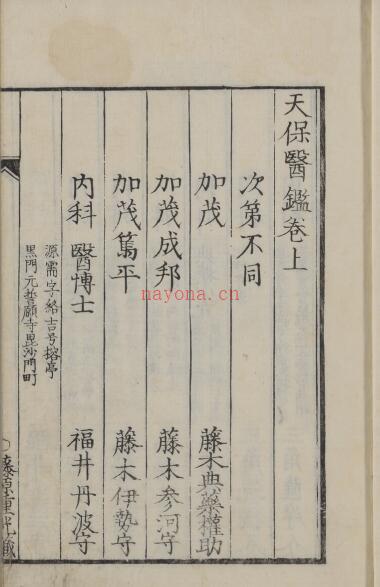 天保醫鑑卷上
次第不同
加茂 藤木典藥權助
加茂成邦 藤木参河守
加茂篤平 藤木伊勢守
内科 醫博士 福井丹波守
源需字絡吉号榕亭
黒門元誓願寺毘沙門町
藤原重光
nayona.cn